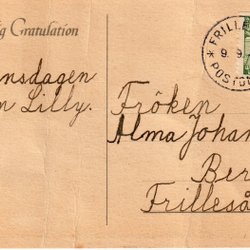 g Gratulation
nsdagen
n Lilly.
FRILLE
9. 9.
POST
Fröken
Alma Johan
Ber
Frilleså